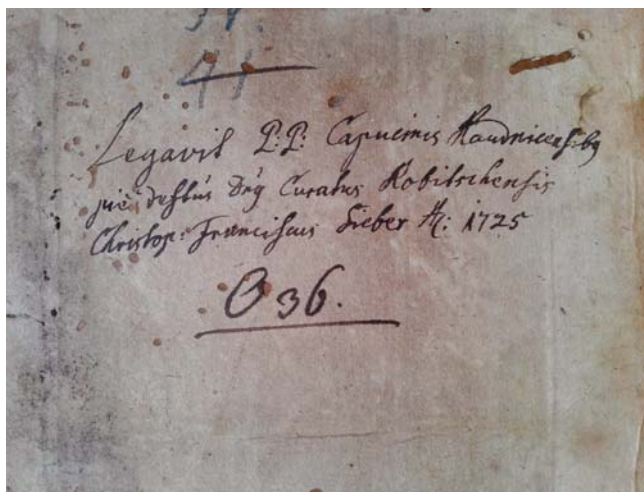 41
Legavit P.P: Capucinis Raudnicensibq
pie defctus Dnq Curatus Kobitschensis
Christop: Franciscus Sieber A: 1725
O 36.